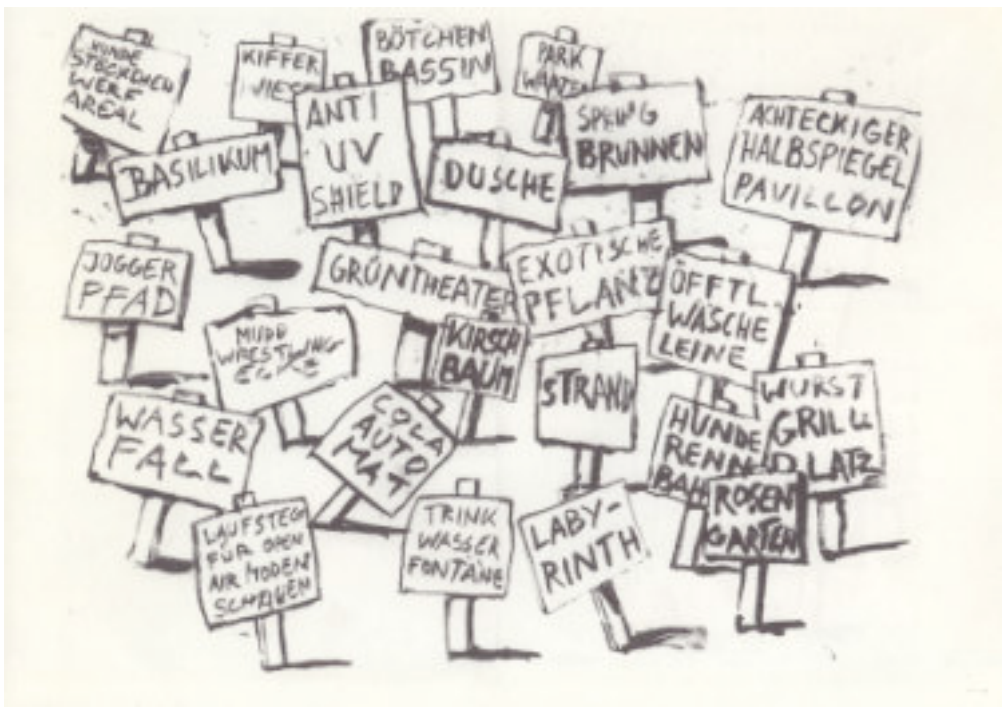 HUNDE
STÖCKCHEN
WERF
AREAL
KIFFER
WIESE
BÖTCHEN
BASSIN
PARK
WÄCHTER
ANTI
UV
SHIELD
BASILIKUM
DUSCHE
BRUNNEN
ACHTECKIGER
HALBSPIEGEL
PAVILLON
JOGGER
PFAD
GRÜNTHEATER
EXOTISCHE
PFLANZ
ÖFFTL.
WÄSCHE
LEINE
MUDD
WRESTLING
ECKE
KIRSCH
BAUM
STRAND
WURST
GRILL
PLATZ
HUNDE
RENN
BAH
WASSER
FALL
COLA
AUTO
MAT
ROSEN
GARTEN
LAUFSTEG
FÜR OPEN
AIR MODEN
SCHAUEN
TRINK
WASSER
FONTÄNE
LABY-
RINTH